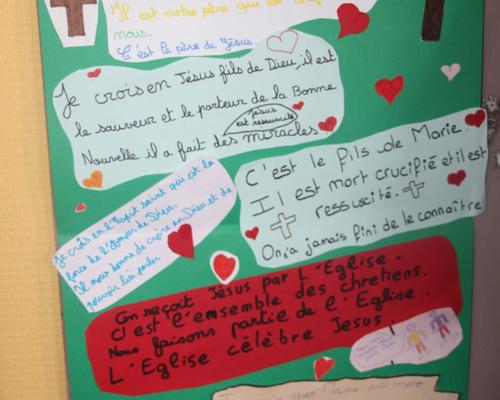 est notre père qui est
nous.
C'est le père de Jésus.
Je crois en Jésus fils de Dieu, il est
le sauveur et le porteur de la Bonne
Nouvelle il a fait des miracles
Jésus
est ressuscité
C'est le fils de Marie.
Il est mort crucifié et il est
ressuscité.
On,a jamais fini de le connaître
Je crois en l'Esprit saint qui est la
force de l'Amour de Dieu.
Il nous donne de croire en Dieu et de
pouvoir lui parler
On reçoit Jésus par L'Eglise.
C'est l'emsemble des chretiens.
Nous faisons partie de l'Eglise.
L'Eglise célèbre Jesus.